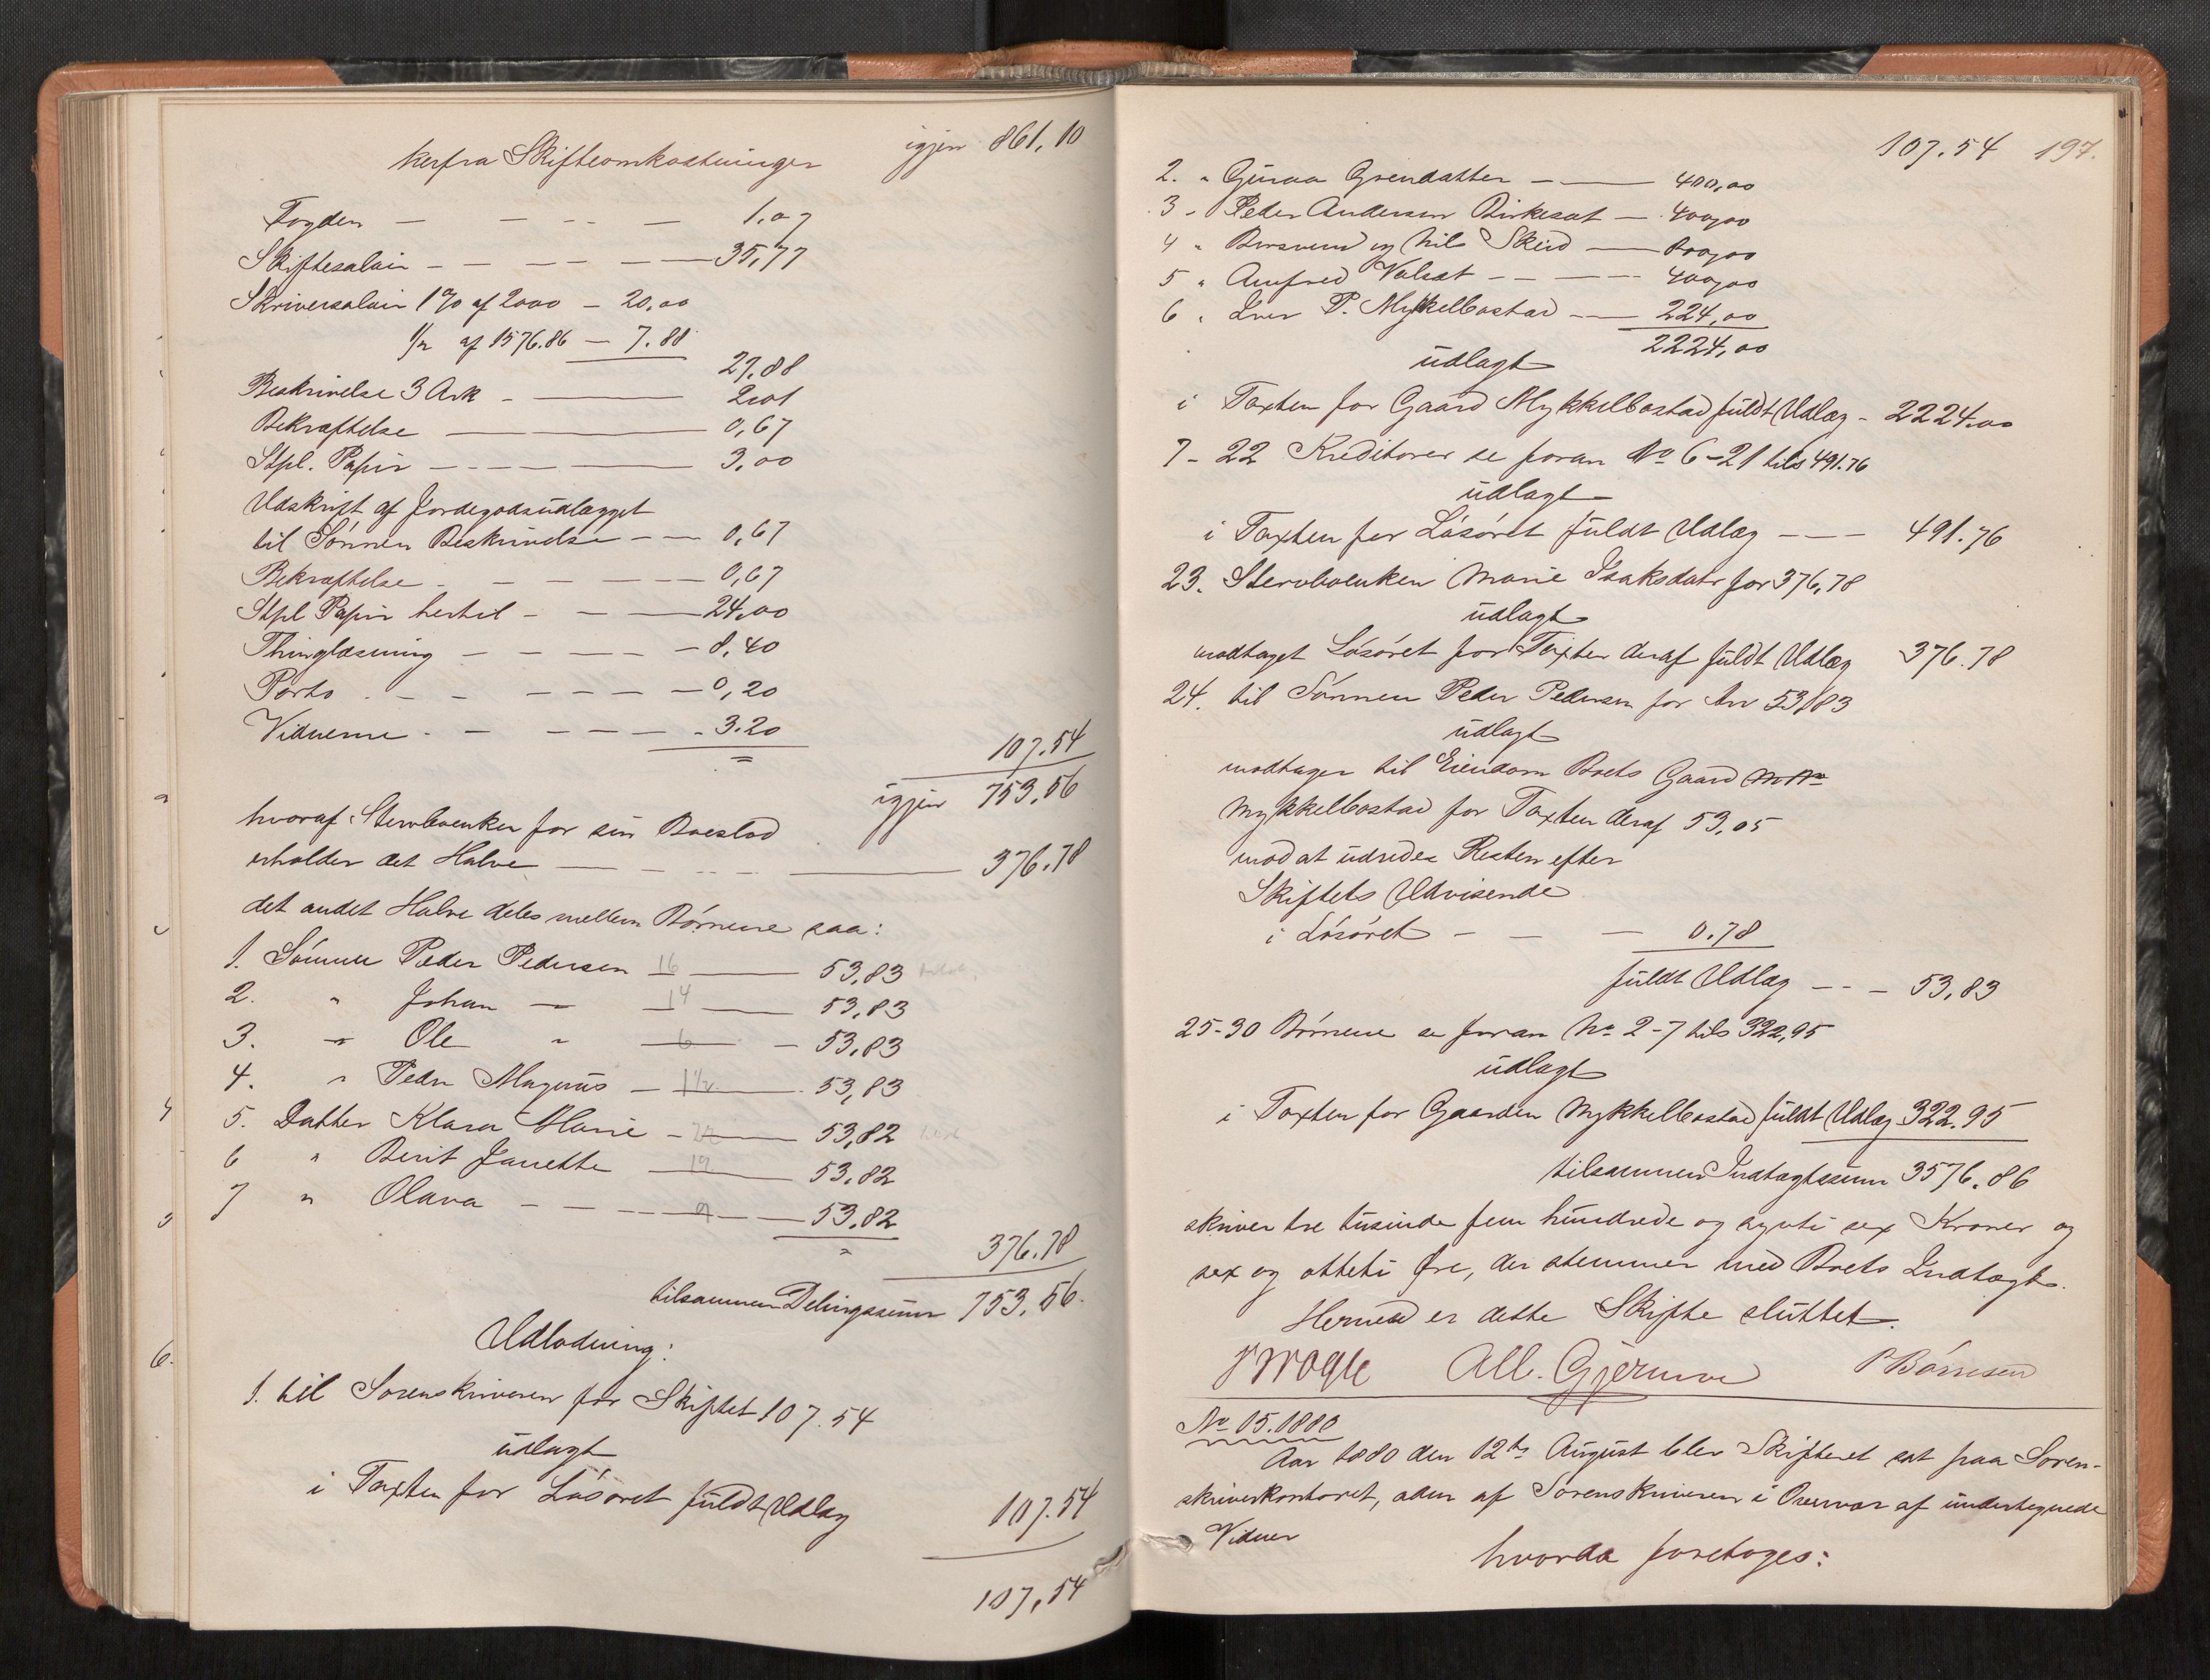 igjen 861,10
herfra Skifteomkostninger
Fogden — 1.07
Skiftesalair — 35,77
Skriversalair 1% af 2000 — 20,00
½ af 1576.86 — 7.88
27.88
Beskrivelse 3 Ark — 2.01
Bekræftelse — 0,67
Stpl. Papir — 3,00
Udskrift af Jordegodsudlægget
til Sønnen Beskrivelse — 0,67
Bekræftelse — 0,67
Stpl Papir hertil — 24,00
Thinglæsning — 8,40
Porto — 0,20
Vidnerne — 3.20
107.54
igjen 753,56
hvoraf Stervboenken for sin Boeslod
erholder det Halve — 376.78
det andet Halve deles mellem Børnene saa:
1. Sønnen Peder Pedersen 16 — 53,83
2. " Johan — 14 — 53,83
3. " Ole " 6 — 53,83
4. " Peder Magnus — 1½ — 53,83
5. Datter Klara Marie — 22 — 53,82
6 " Berit Janette — 19 — 53,82
7 " Olava — 9 — 53,82
376.78
tilsammen Delingssum 753,56.
Udlodning:
1. til Sorenskriveren for Skiftet 107.54
udlagt
i Taxten for Løsøret fuldt Udlæg 107.54
107,54
107.54 197.
2. " Guraa Gundatter — 400,00
3 " Peder Andersen Birkesæt — 400,00
4 " og Nils Skeid — 800,00
5 " Amfred Valsæt — 400,00
6 " Iver P. Mykkelbostad — 224,00
2224,00
udlagt
i Taxten for Gaard Mykkelbostad fuldt Udlæg — 2224.00
7-22 Kreditorer se foran No 6-21 tils 491.76
udlagt
i Taxten for Løsøret fuldt Udlæg — 491.76
23. Stervboenken Marie Isaksdatr for 376,78
udlagt
modtaget Løsøret for Taxten deraf fuldt Udlæg 376.78
24. til Sønnen Peder Pedersen for Arv 53,83
udlagt
modtager til Eiendom Boets Gaard
Mykkelbostad for Taxten deraf 53,05
mod at udrede Resten efter
Skiftets Udvisende
i Løsøret — 0.78
fuldt Udlæg — 53,83
25-30 Børnene se foran No 2-7 tils 322,95
udlagt
i Taxten for Gaarden Mykkelbostad fuldt Udlæg 322.95
tilsammen Indtægtssum 3576.86
skriver tre tusinde fem hundrede og sytti sex Kroner og
sex og otteti Øre, der stemmer med Boets Indtægt.
Hermed er dette Skifte sluttet.
Alb. Gjerme P Børresen
No 15.1880
Aar 1880 den 12te August blev Skifteret sat paa Soren-
skriverkontoret, adm af Sorenskriveren i Overvær af undertegnede
Vidner
hvorda foretoges: